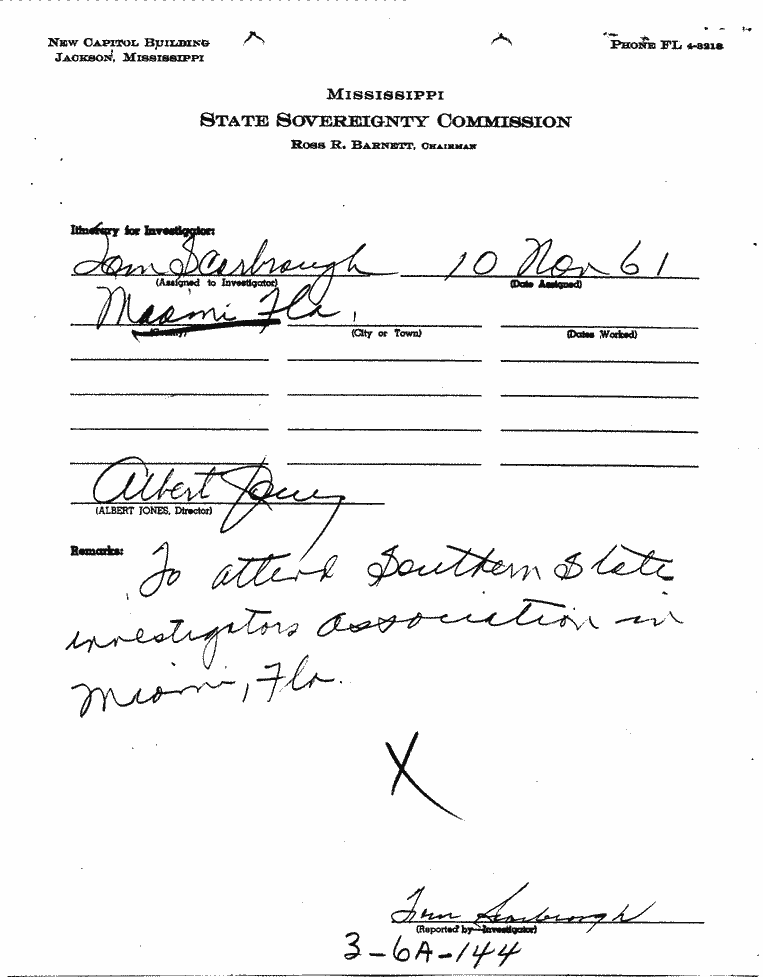 NEW CAPITOL BUILDING
JACKSON, MISSISSIPPI
PHONE FL 4-3218
MISSISSIPPI
STATE SOVEREIGNTY COMMISSION
ROSS R. BARNETT, CHAIRMAN
Itinerary for Investigator:
Tom Scarbrough 10 Nov 61
(Assigned to Investigator) (Date Assigned)
Miami Fla,
(County) (City or Town) (Dates Worked)
Albert Jones
(ALBERT JONES, Director)
Remarks:
To attend Southern State
investigators association in
Miami, Fla.
X
Tom Scarbrough
(Reported by—Investigator)
3-6A-144